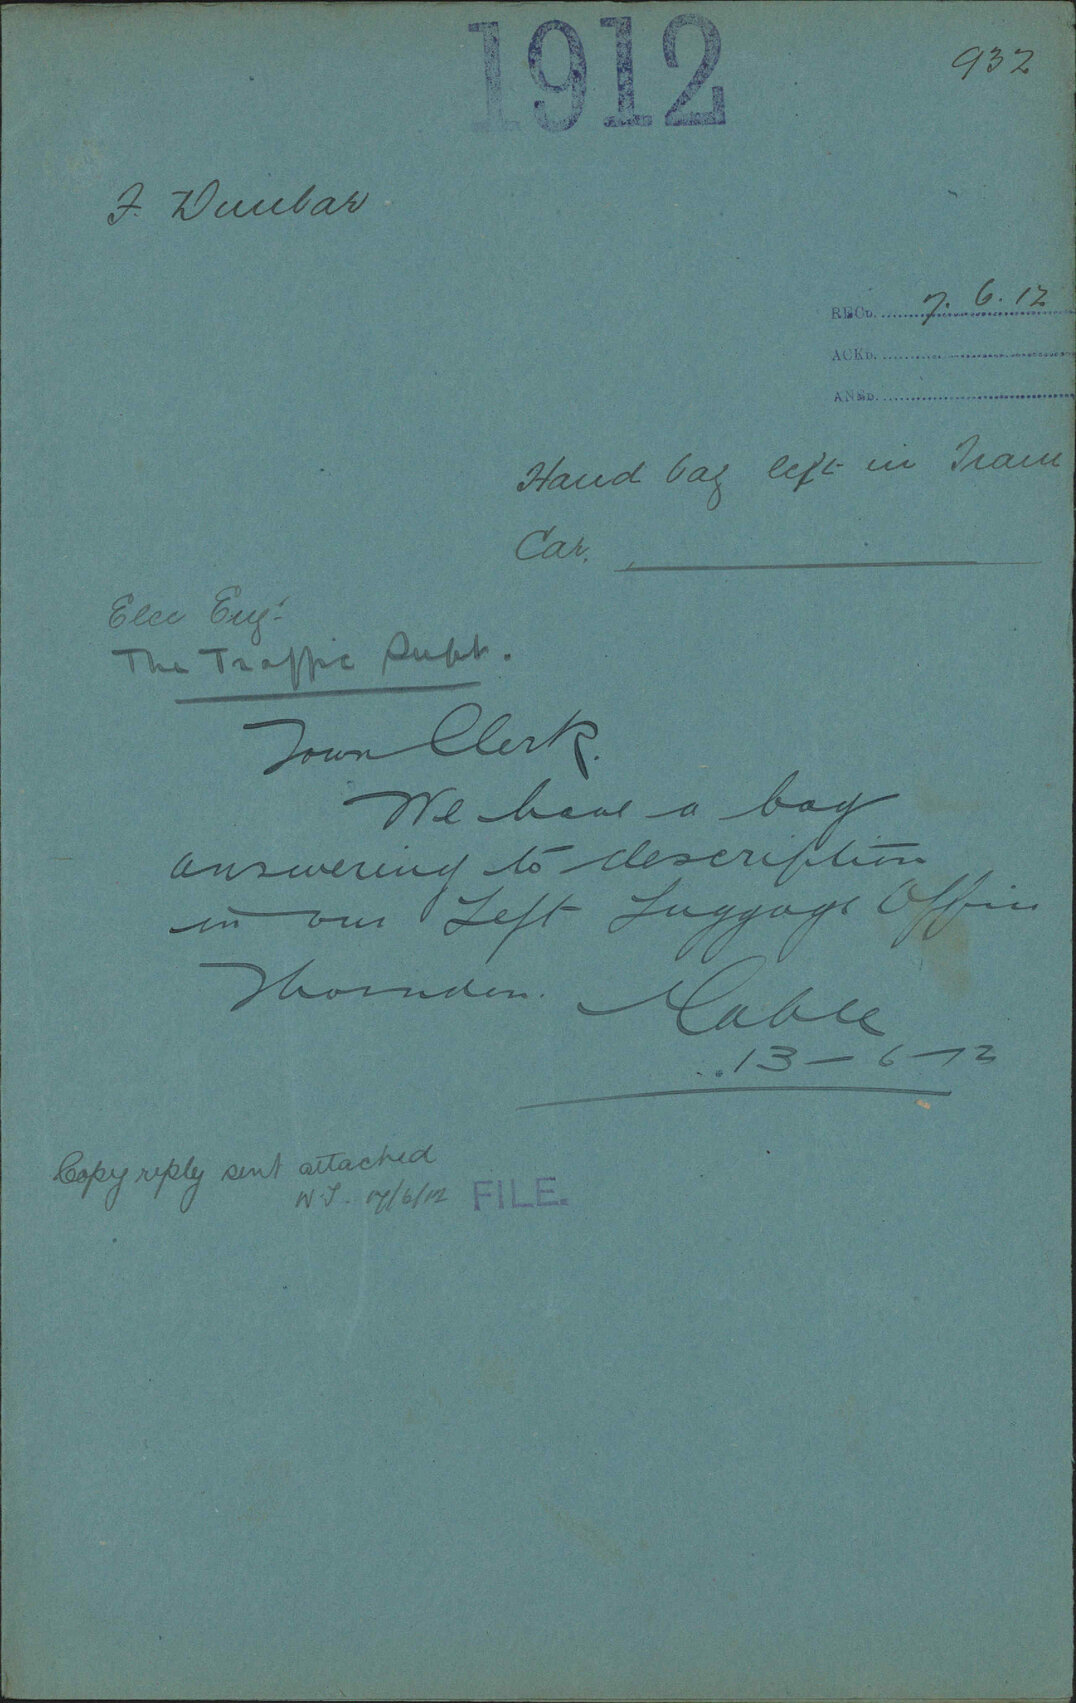 1912
932
F. Dunbar
RECD. 7. 6. 12
ACKD.
ANSD.
Hand bag left in Tram
Car.
Elec Engr
The Traffic Supt.
Town Clerk.
We have a bag
answering to description
in our Left Luggage Office
Thorndon. Cable
13-6-12
Copy reply sent attached
17/6/12 FILE.